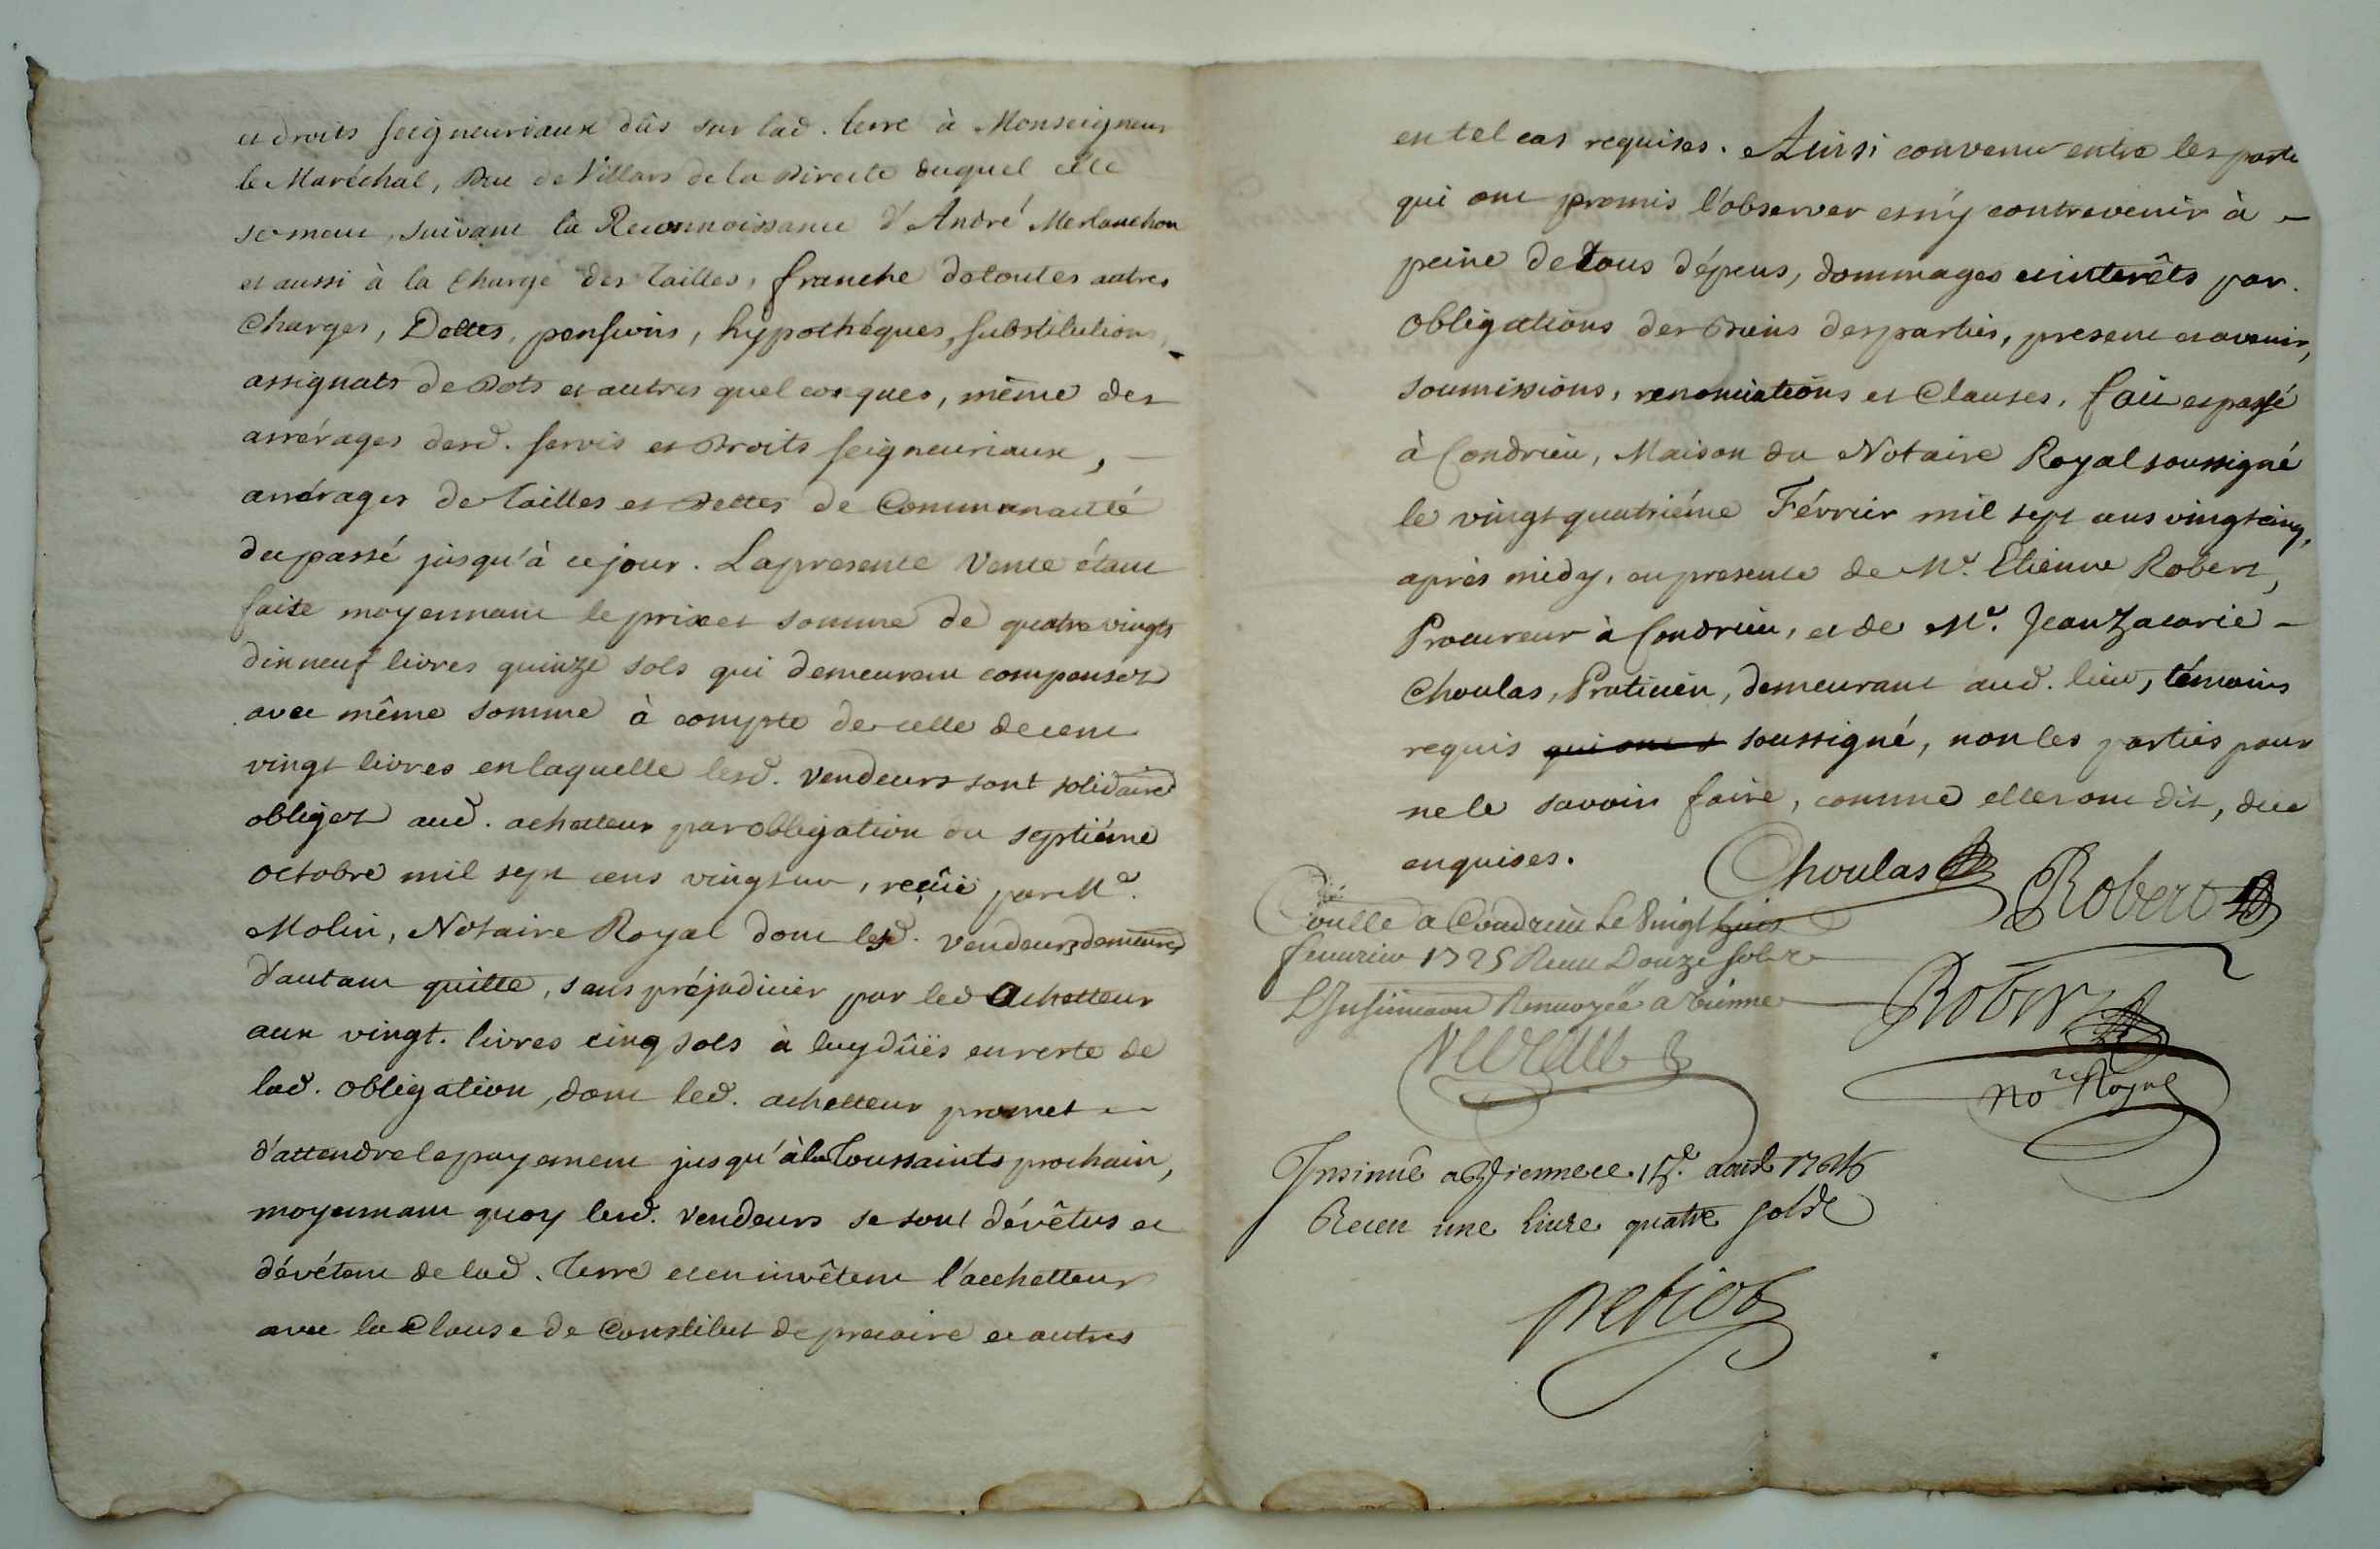 et droits seigneuriaux dûs sur lad. terre à Monseigneur
le Maréchal, Duc de Villars de la Directe duquel elle
se meut, suivant la Reconnoissance d'André Merlanchon
et aussi à la Charge des Tailles, franche de toutes autres
Charges, Dettes, pensions, hypothéques, substitutions,
assignats de Dots et autres quelconques, même des
arrérages desd. servis et Droits seigneuriaux,
arrérages de Tailles et Dettes de Communauté
du passé jusqu'à ce jour. La presente Vente étant
faite moyennant le prix et somme de quatre vingts
dix neuf livres quinze sols qui demeurent compensez
avec même somme à compte de celle de cent
vingt livres en laquelle lesd. Vendeurs sont solidaires
obligez aud. achetteur par obligation du septiéme
octobre mil sept cens vingt un, reçüe par Me.
Molin, Notaire Royal dont lesd. Vendeurs demeures
d'autant quitte, sans préjudicier par led Achetteur
aux vingt livres cinq sols à luy dûës en reste de
lad. obligation, dont led. achetteur promet
d'attendre le payement jusqu'à la Toussaints prochain,
moyennant quoy lesd. Vendeurs se sont dévêtus et
dévétent de lad. Terre et en invêtent l'acchetteur
avec la Clause de Constitut de precaire et autres
en tel cas requises. Ainsi convenu entre les partis
qui ont promis l'observer et n'y contrevenir à
peine de tous dépens, dommages et interêts par
obligations des Biens des parties, present et avenir,
soumissions, renonciations et Clauses, fait et passé
à Condrieu, Maison du Notaire Royal soussigné
le vingt quatriéme Février mil sept cens vingt cinq,
après midy, en presence de Me. Etienne Robert,
Procureur à Condrieu, et de Me. Jean Zacarie
Choulas, Praticien, demeurant aud. lieu, témoins
requis qui ont s soussigné, non les parties pour
ne le savoir faire, comme elles ont dit, de ce
enquises.
Choulas
Robert
Controllé a Condrieu Le Vingt
feuurier 1725 Receu Douze sols
L'Insinuaon Renuoyée a Vienne
Robert
no.re Royal
Insinué a Vienne ce 15e. aoust
Receu une liure quatre sols